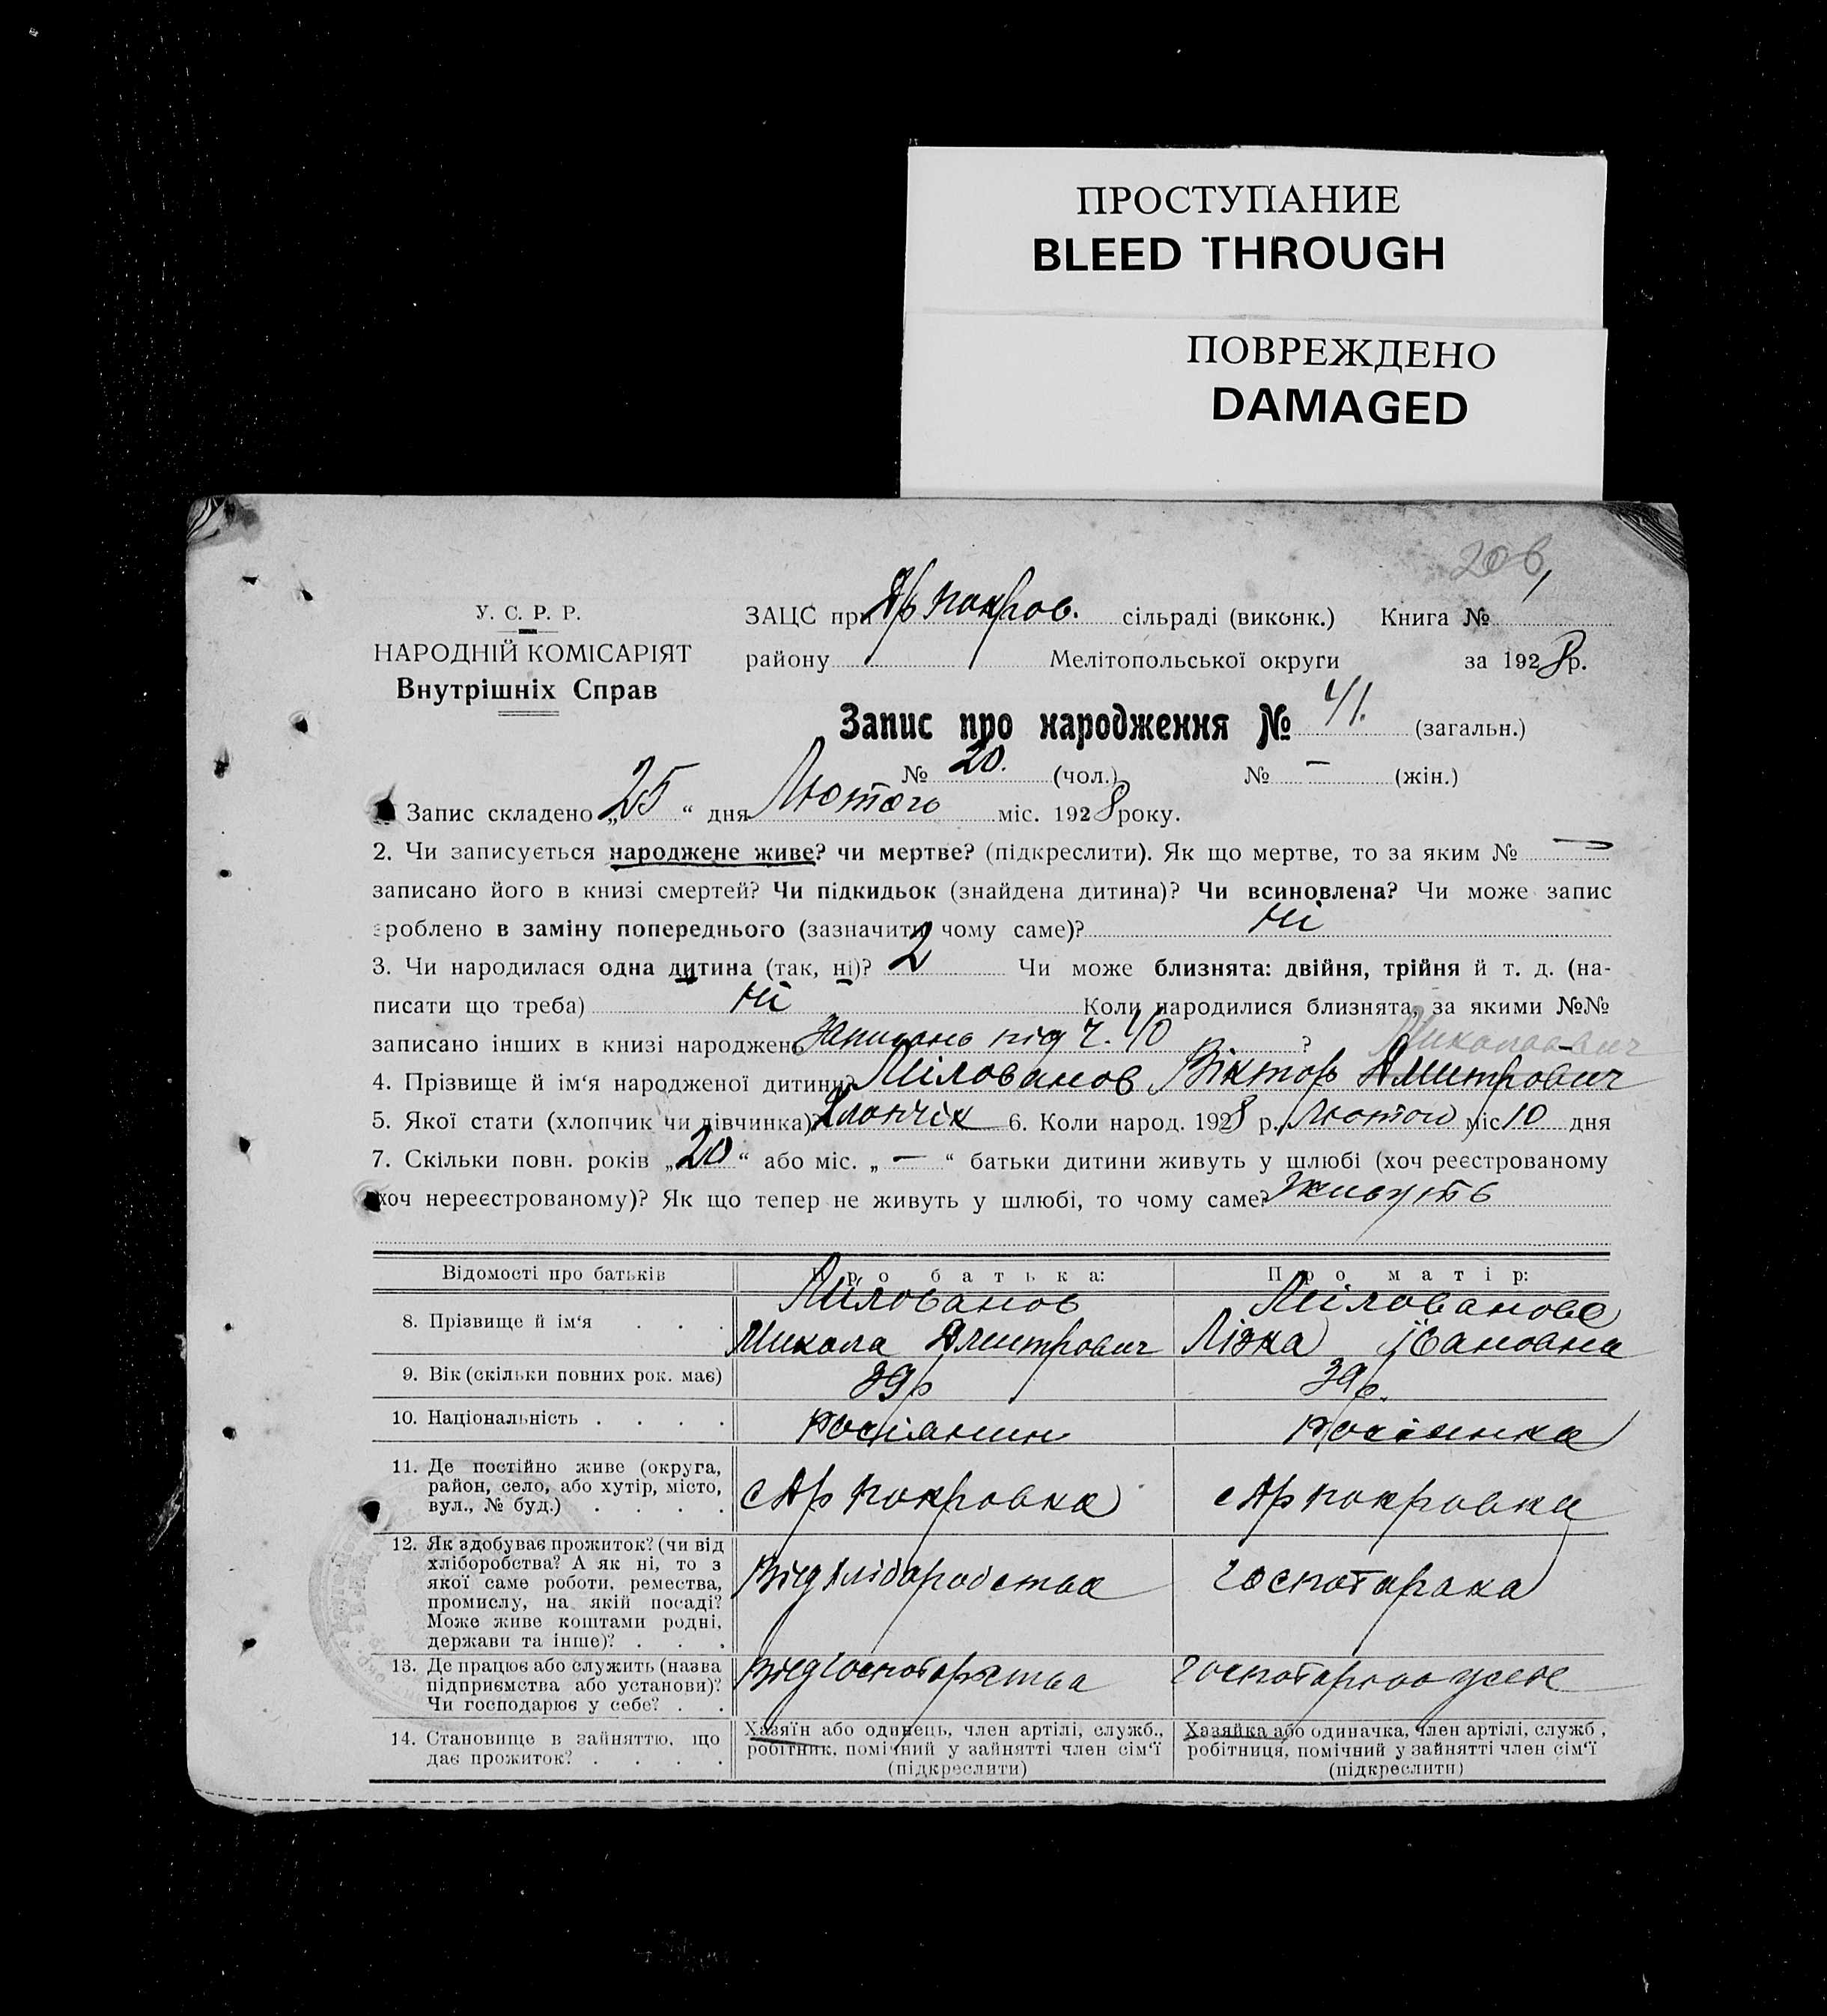 ПРОСТУПАНИЕ
BLEED THROUGH
ПОВРЕЖДЕНО
DAMAGED
206
У. С. Р. Р.
НАРОДНІЙ КОМІСАРІЯТ
Внутрішніх Справ
ЗАЦС при Ар покров. сільраді (виконк.) Книга № 1
району Мелітопольської округи за 1928 р.
Запис про народження № 41. (загальн.)
№ 20. (чол.) № — (жін.)
Запис складено „25“ дня Лютого міс. 1928 року.
2. Чи записується народжене живе? чи мертве? (підкреслити). Як що мертве, то за яким № —
записано його в книзі смертей? Чи підкидьок (знайдена дитина)? Чи всиновлена? Чи може запис
зроблено в заміну попереднього (зазначити чому саме)? Ні
3. Чи народилася одна дитина (так, ні)? 2 Чи може близнята: двійня, трійня й т. д. (на-
писати що треба) Ні Коли народилися близнята, за якими №№
записано інших в книзі народжень Записано під ч. 40 ? Миколаович
4. Прізвище й ім‘я народженої дитини? Мілованов Віктор Дмитрович
5. Якої стати (хлопчик чи дівчинка) Хлопчік 6. Коли народ. 1928 р. Лютого міс 10 дня
7. Скільки повн. років „20“ або міс. „—“ батьки дитини живуть у шлюбі (хоч реєстрованому
хоч нереєстрованому)? Як що тепер не живуть у шлюбі, то чому саме? Живуть
Відомості про батьків Про батька: Про матір:
8. Прізвище й ім‘я . . . Мілованов Микола Дмитрович Мілованова Лізка Івановна
9. Вік (скільки повних рок. має) 39 р 39 р.
10. Національність . . . . росіянин росіянка
11. Де постійно живе (округа,
район, село, або хутір, місто,
вул., № буд.) . . . . с Ар покровка с Ар покровка
12. Як здобуває прожиток? (чи від
хліборобства? А як ні, то з
якої саме роботи, ремества,
промислу, на якій посаді?
Може живе коштами родні,
держави та інше)? . . . Від хліборобства господарка
13. Де працює або служить (назва
підприємства або установи)?
Чи господарює у себе? . .
14. Становище в зайняттю, що
дає прожиток? . . . .
Хазяїн або одинець, член артілі, служб.,
робітник, помічний у зайнятті член сім‘ї
(підкреслити)
Хазяйка або одиначка, член артілі, служб,
робітниця, помічний у зайнятті член сім‘ї
(підкреслити)